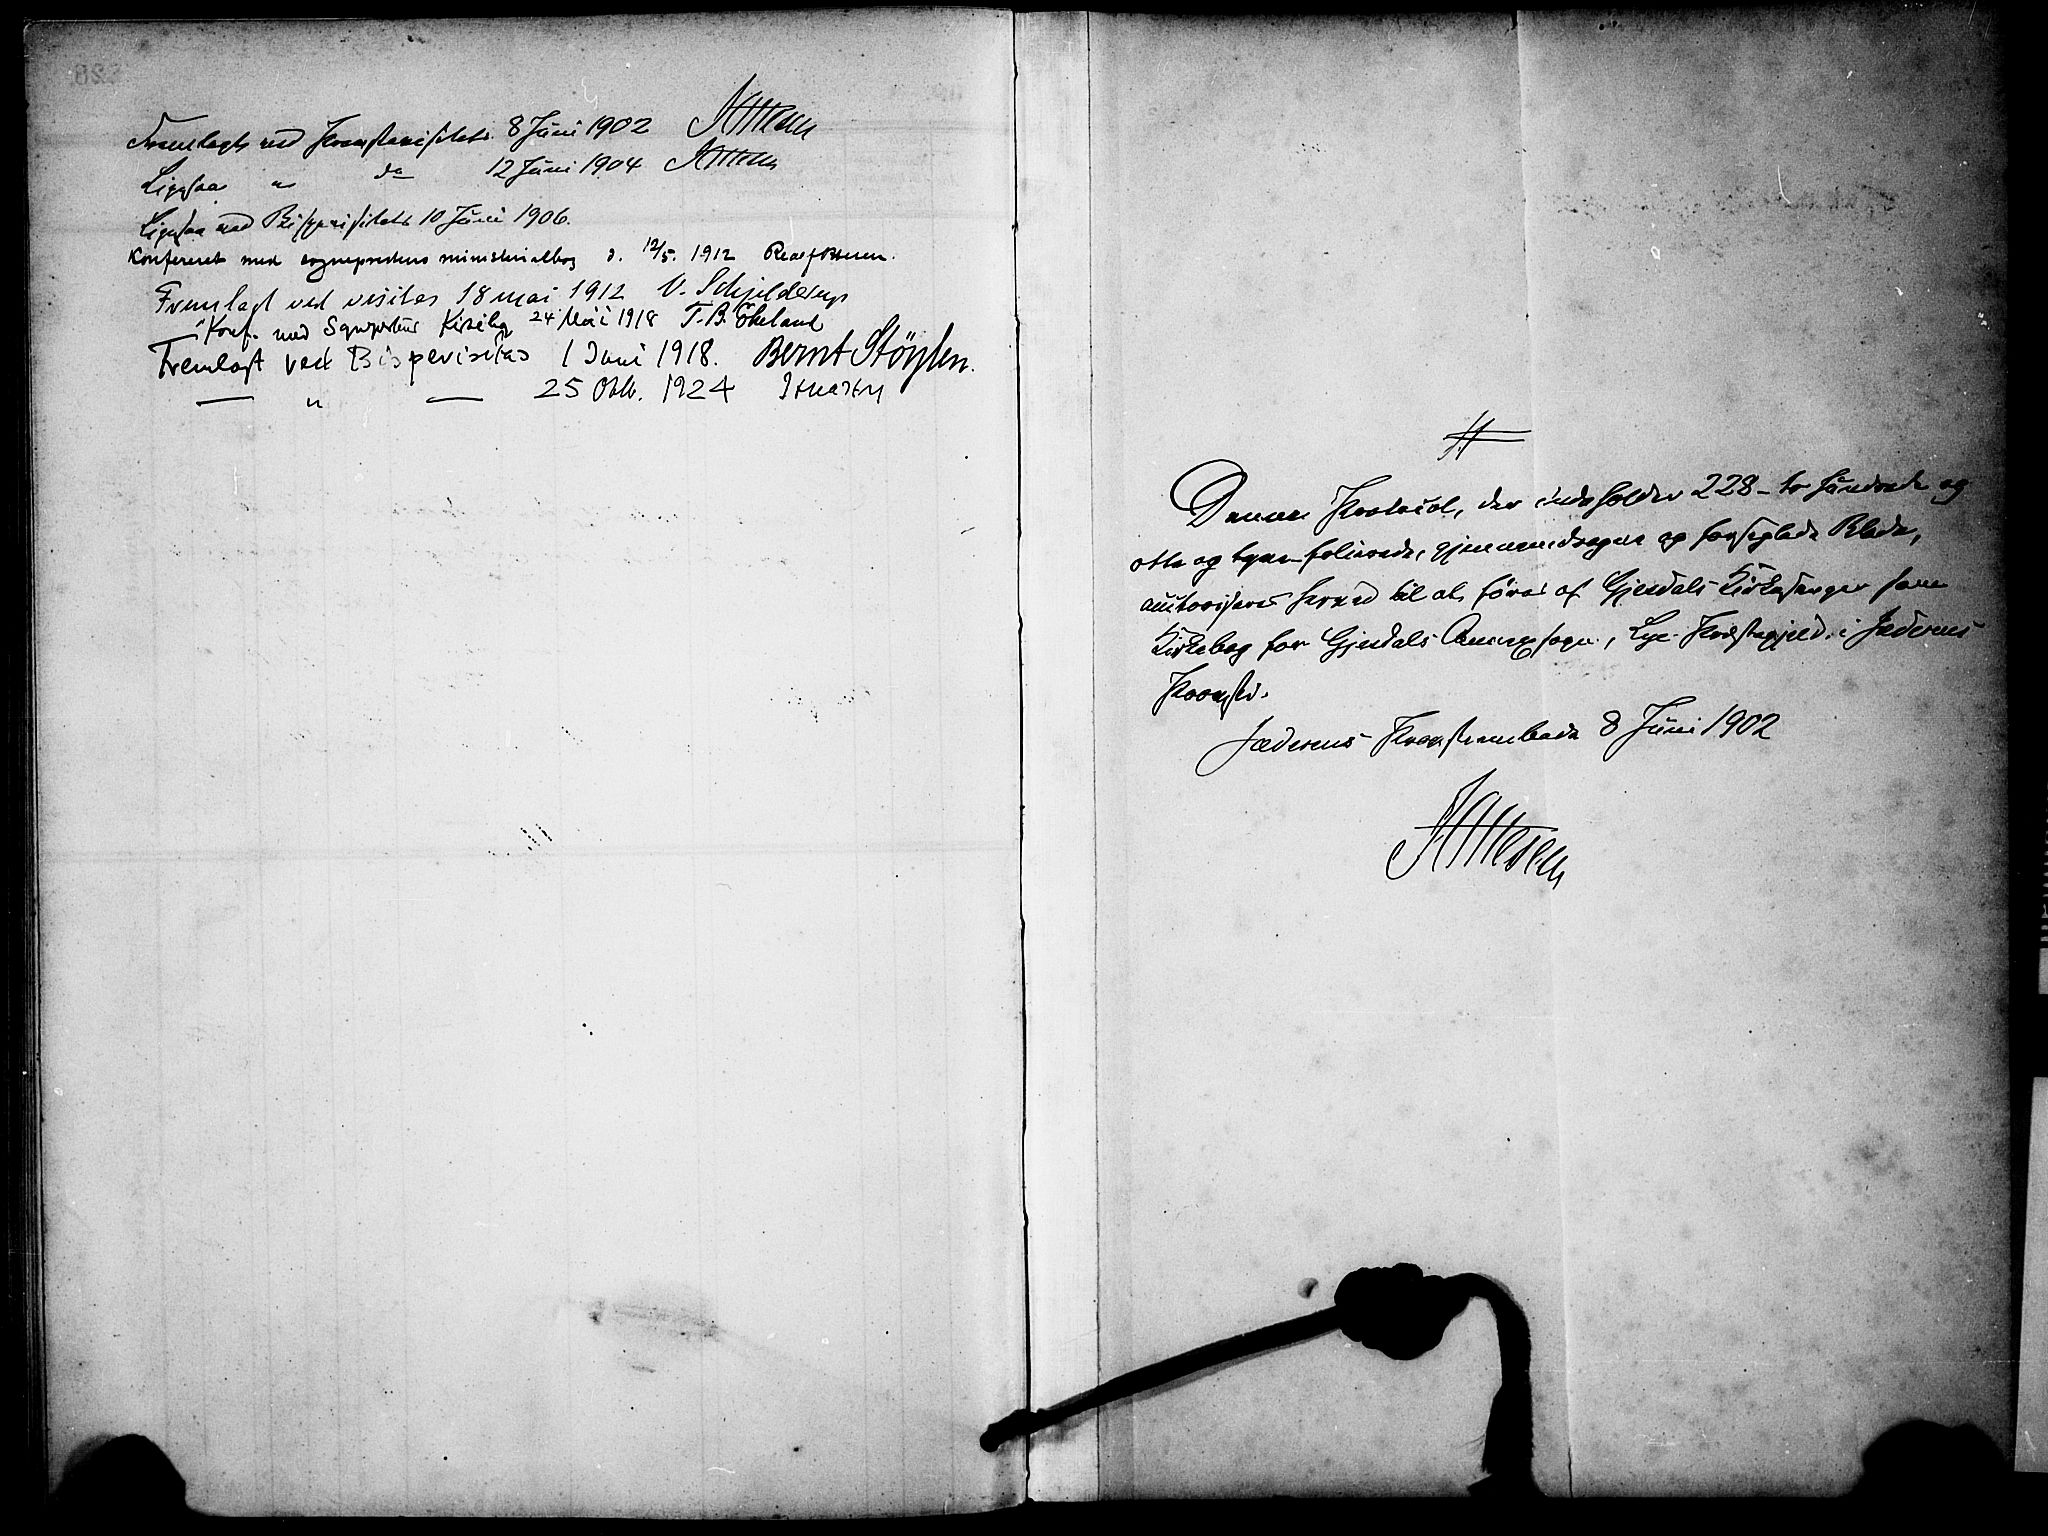 Fremlagt ved Provstevisitats 8 Juni 1902
Ligesaa " do 12 Juni 1904
Ligesaa ved Bispevisitats 10 Juni 1906.
Konfereret med sogneprestens ministerialbog d. 12/5. 1912
Fremlagt ved visitas 18 mai 1912 V. Schjelderup
Konf. med Sgnprstens Kirkebog 24 Mai 1918 T. B. Ökeland
Fremlagt ved Bispevisitas 1 Juni 1918. Bernt Støylen.
— " — 25 Oktb. 1924
Denne Protocol, der indeholder 228 - to hundrede og
otte og tyve - folierede, gjennemdragne og forseglede Blade,
autoriseres herved til at føres af Gjesdals Kirkesanger som
Kirkebog for Gjesdals Annexsogn, Lye Præstegjeld i Jæderens
Provsti.
Jæderens Provsteembede 8 Juni 1902